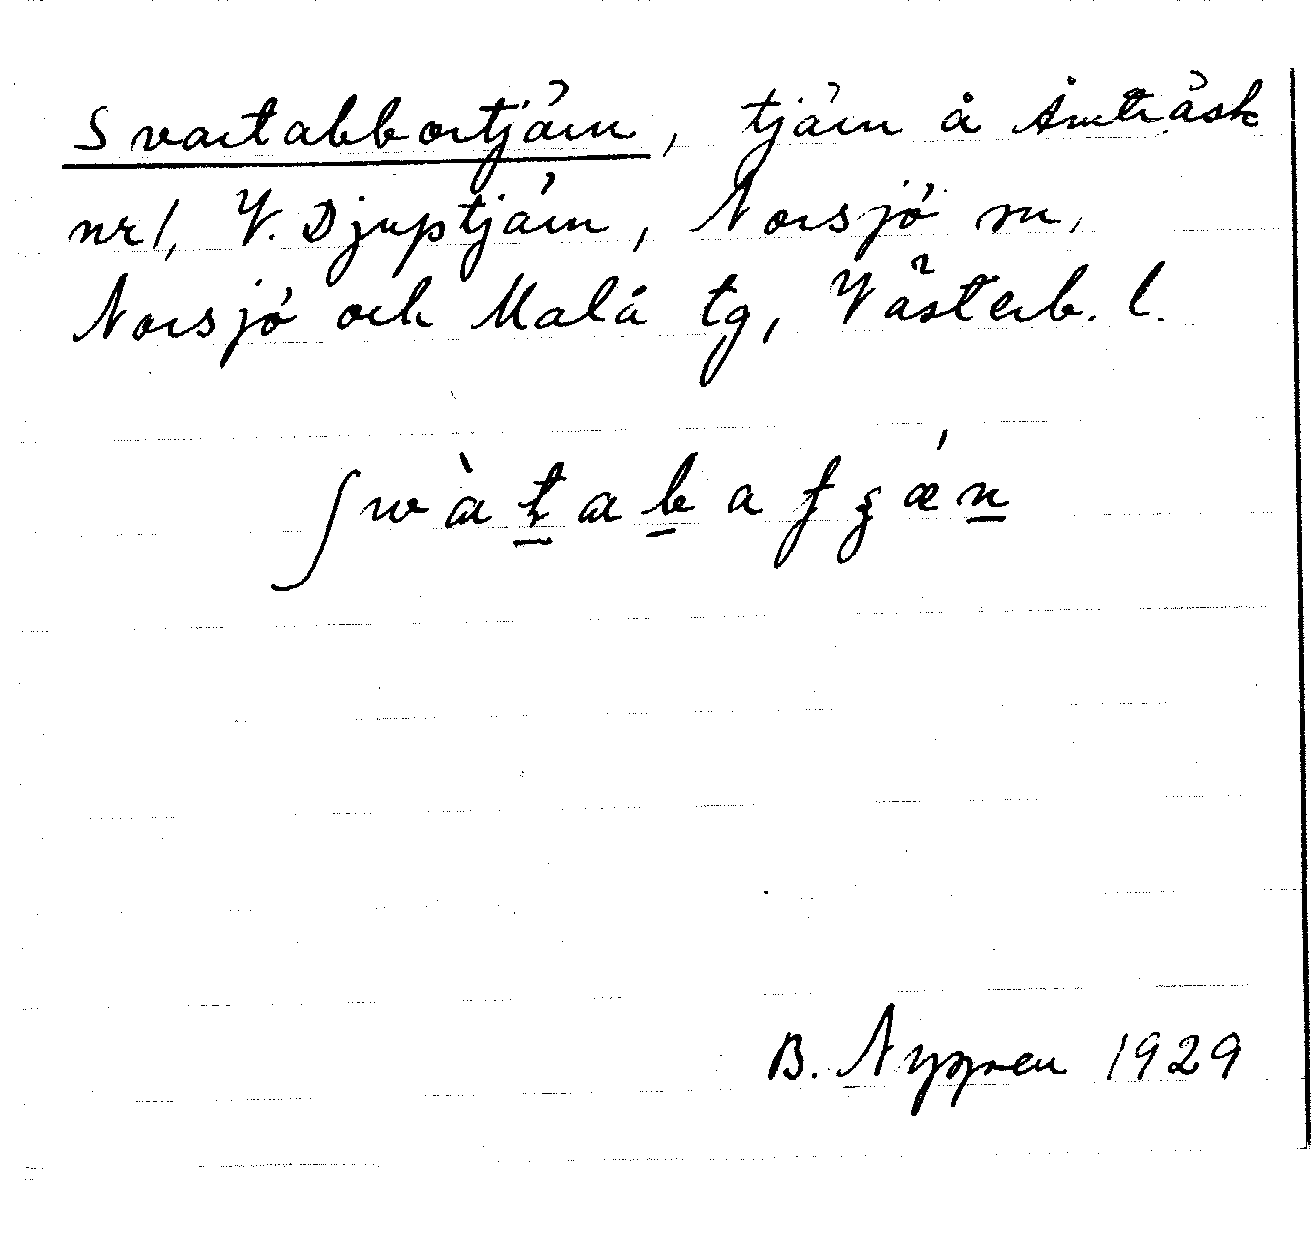 Svartabbortjärn, tjärn å Åmträsk
nr 1, V. Djuptjärn, Norsjö sn,
Norsjö och Malå tg, Västerb. l.
B. Nygren 1929